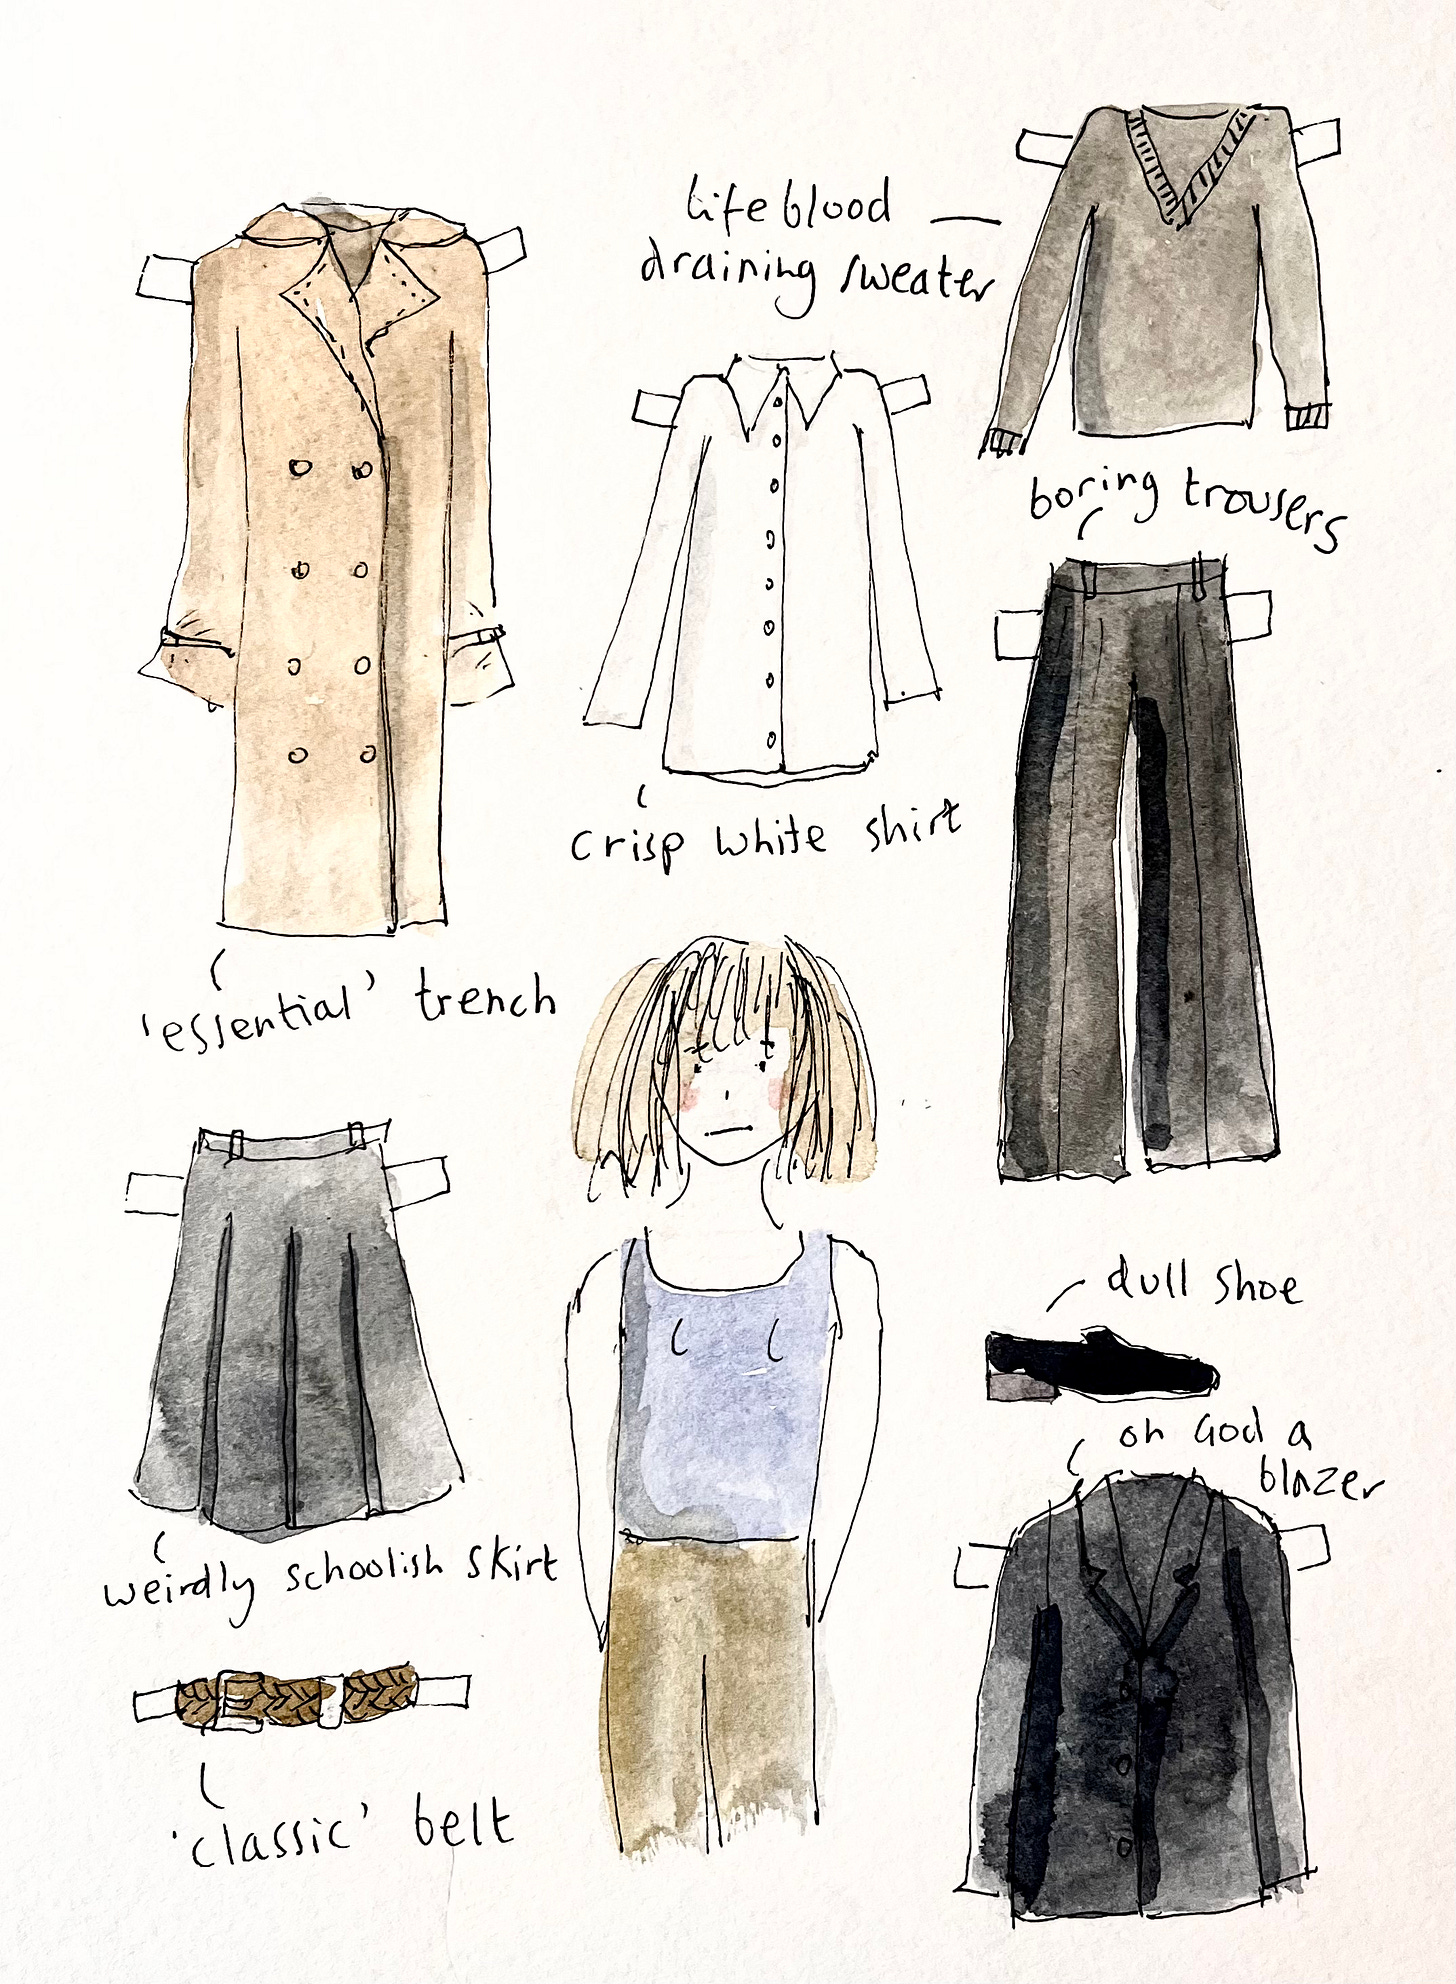 lifeblood
draining sweater
boring trousers
crisp white shirt
'essential' trench
dull shoe
oh God a
blazer
weirdly schoolish skirt
'classic' belt